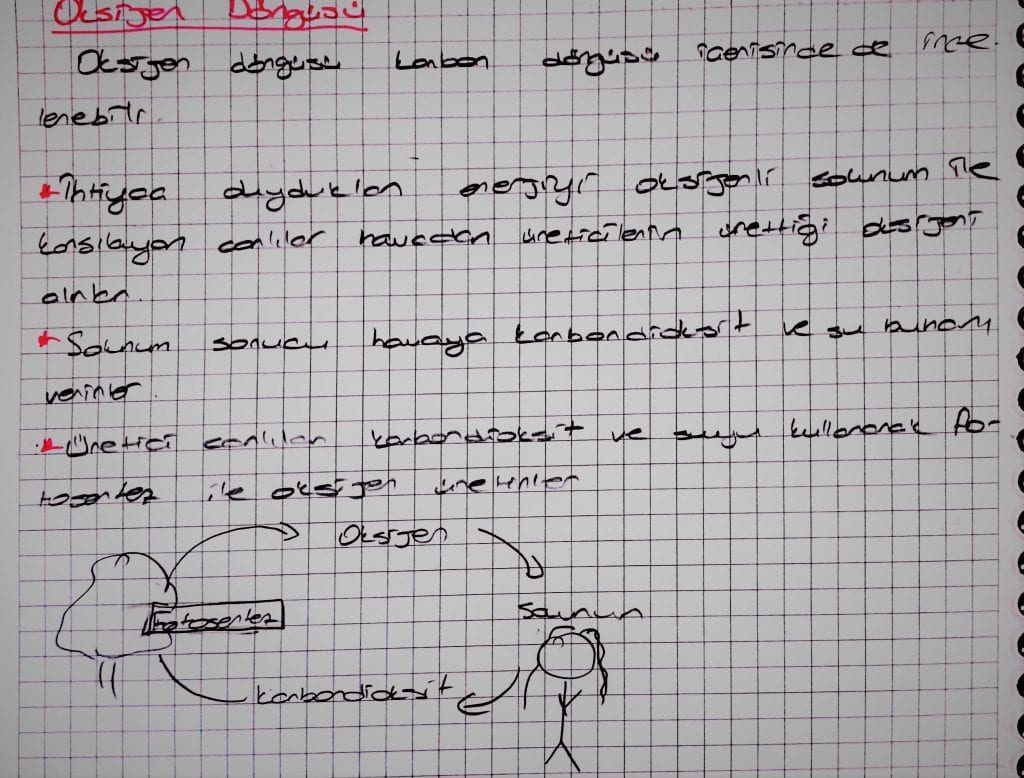 Oksijen Döngüsü
Oksijen döngüsü karbon döngüsü içerisinde de ince-
lenebilir.
* İhtiyaç duydukları enerjiyi oksijenli solunum ile
karşılayan canlılar havadan üreticilerin ürettiği oksijeni
alırlar.
* Solunum sonucu havaya karbondioksit ve su buharı
verirler.
* Üretici canlılar karbondioksit ve suyu kullanarak fo-
tosentez ile oksijen üretirler
Oksijen
Fotosentez
Solunum
karbondioksit